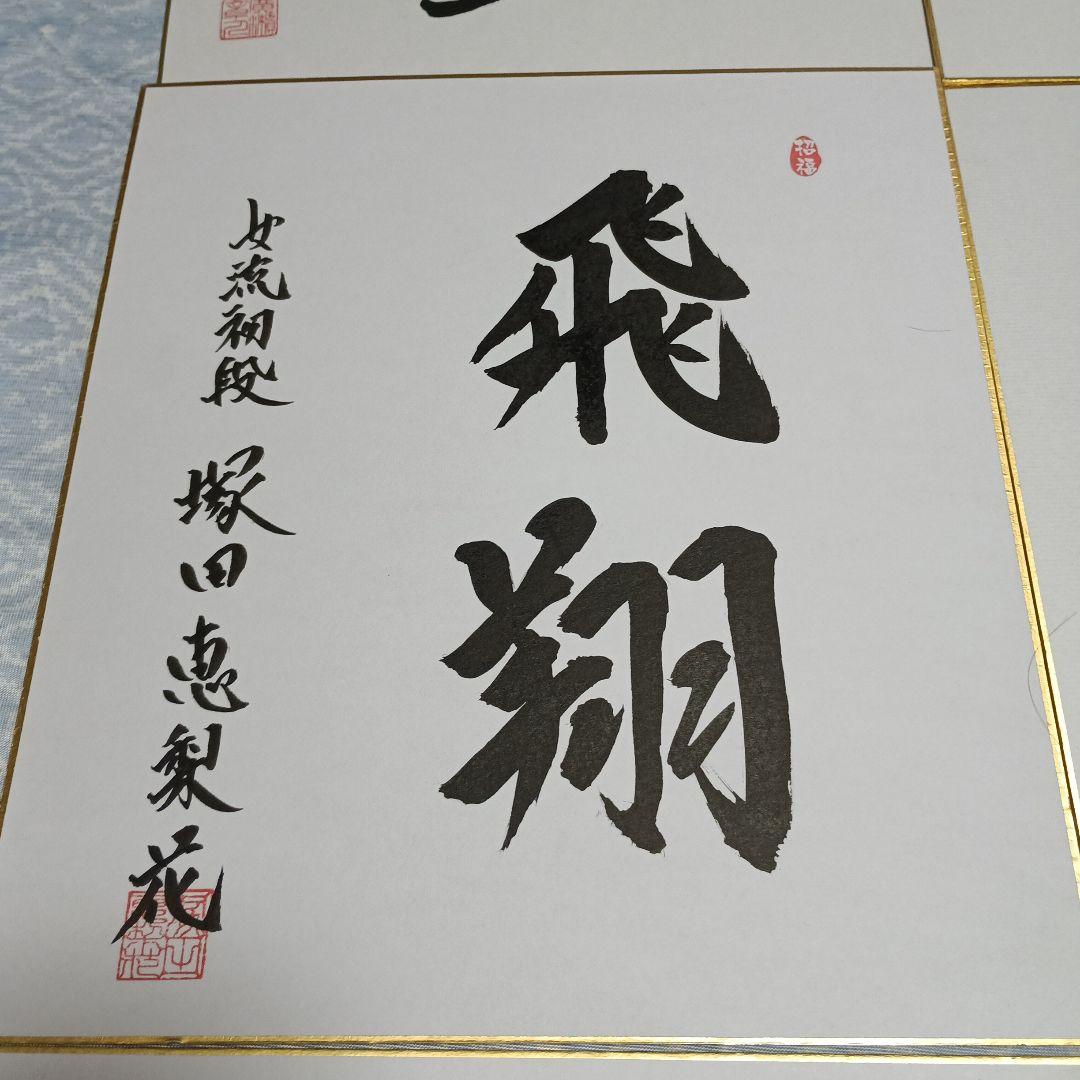 招福
飛翔
女流初段 塚田恵梨花